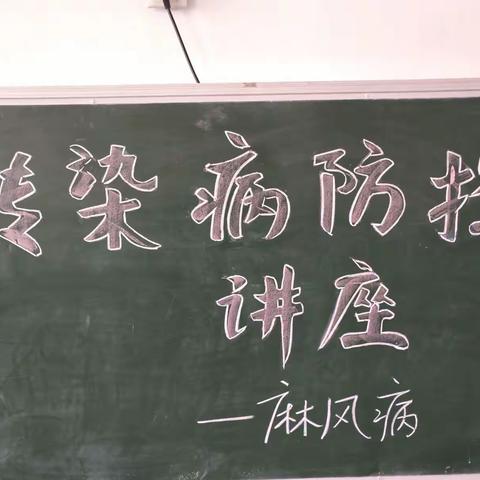 传染病防控
讲座
—麻风病